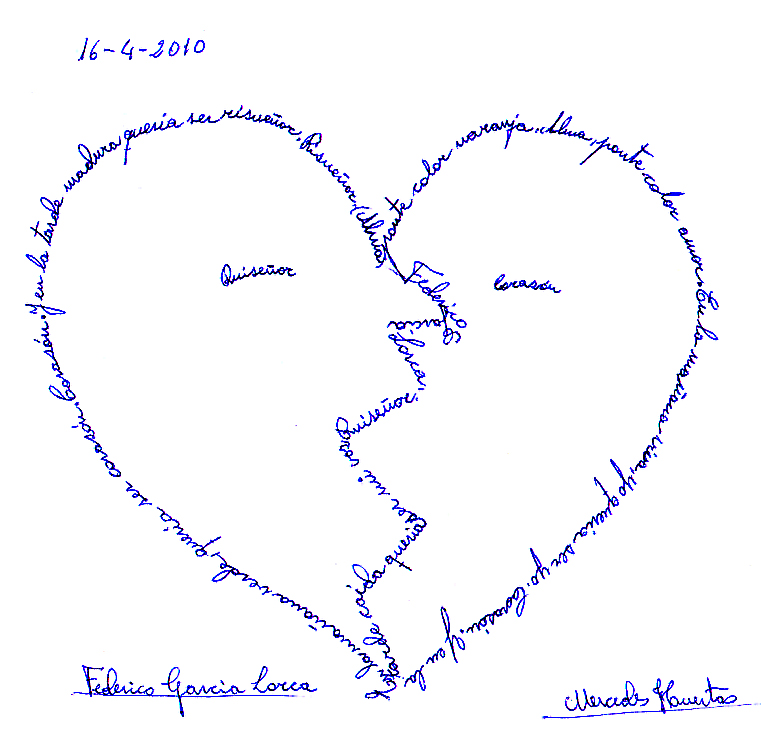 16-4-2010
En la mañana verde, quería ser corasón. Corasón. Y en la tarde madura quería ser risueñor. Risueñor. (Alma, ponte color naranja. Alma, ponte color amor. En la mañana viva, yo queria ser yo. Corasón. Y en la
tarde caida queria ser mi voz. Ruiseñor.
Federico Garcia Lorca.
Ruiseñor
Corasón
Federico García Lorca
Mercedes Huertas